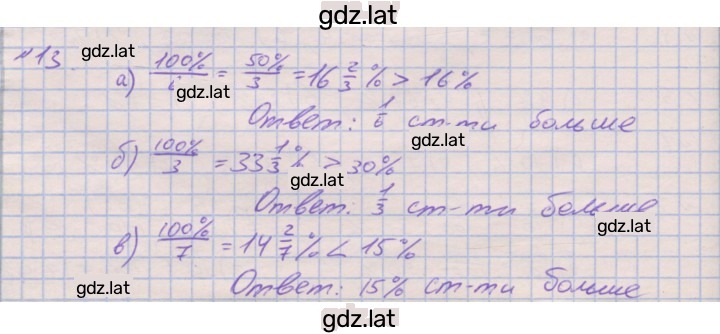 gdz.lat
№13. gdz.lat
а) 100%/6 = 50%/3 = 16 2/3 % > 16%
gdz.lat
Ответ: 1/6 ст-ти больше
gdz.lat
б) 100%/3 = 33 1/3 % > 30%
gdz.lat
Ответ: 1/3 ст-ти больше
gdz.lat
в) 100%/7 = 14 2/7 % < 15%
gdz.lat
Ответ: 15% ст-ти больше
gdz.lat